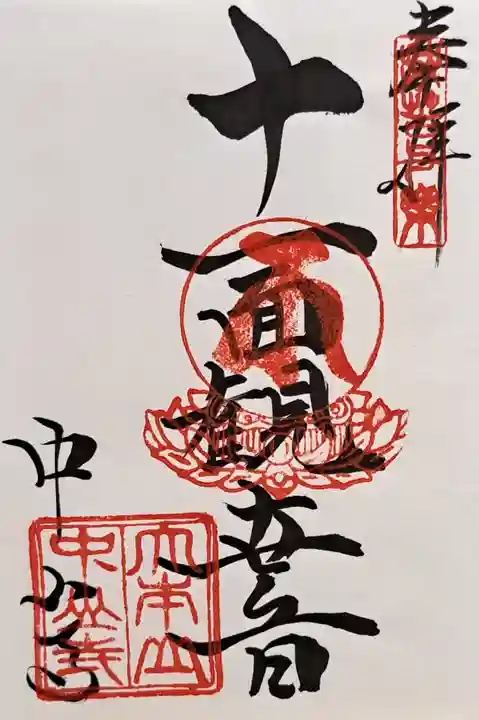 奉拝
十一面観音
中山寺
大本山
中山寺